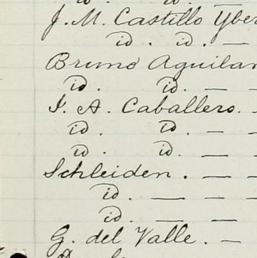 J. M. Castillo Yber
id. id. —
Bruno Aguilar
id. id.
J. A. Caballero.
id. id. — —
id id. — —
Schleiden. — —
id. — — —
id. — —
G. del Valle. —